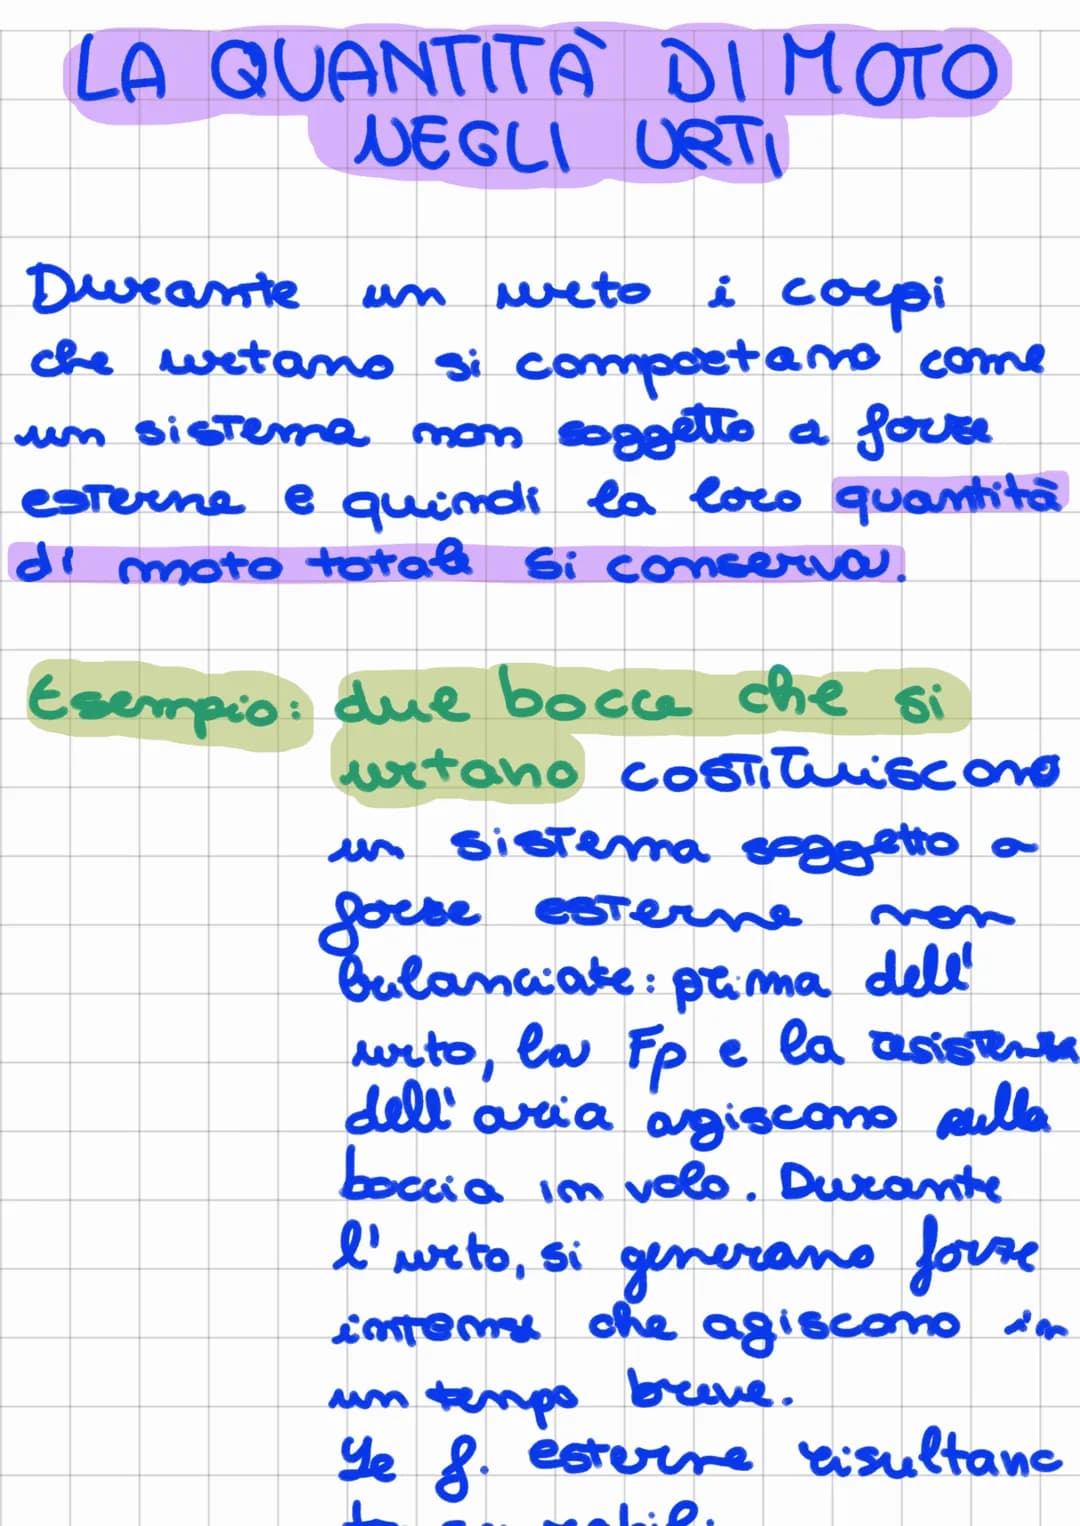 LA QUANTITÀ DI MOTO
NEGLI URTI
Durante un urto i corpi
che urtano si comportano come
un sistema non soggetto a forze
esterne e quindi la loro quantità
di moto totale si conserva.
Esempio: due bocce che si
urtano costituiscono
un sistema soggetto a
forze esterne non
balanciate: prima dell'
urto, la Fp e la resistenza
dell'aria agiscono sulla
boccia in volo. Durante
l'urto, si generano forze
intense che agiscono in
un tempo breve.
Le f. esterne risultano